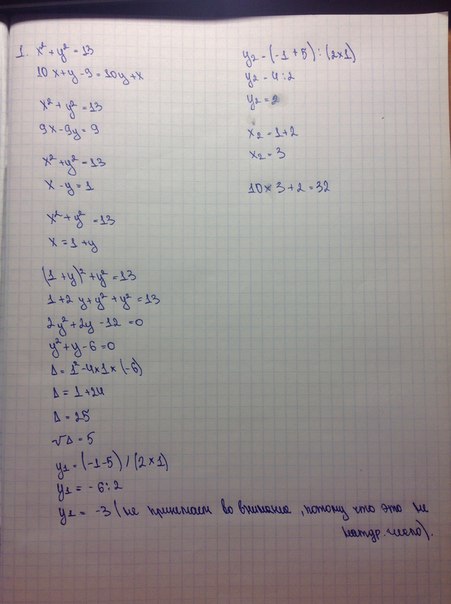 1. x² + y² = 13
10x + y - 9 = 10y + x
x² + y² = 13
9x - 9y = 9
x² + y² = 13
x - y = 1
x² + y² = 13
x = 1 + y
(1 + y)² + y² = 13
1 + 2y + y² + y² = 13
2y² + 2y - 12 = 0
y² + y - 6 = 0
Δ = 1² - 4×1×(-6)
Δ = 1 + 24
Δ = 25
√Δ = 5
y1 = (-1-5) / (2×1)
y1 = -6 : 2
y1 = -3 (не принимаем во внимание, потому что это не
натур. число).
y2 = (-1 + 5) : (2×1)
y2 = 4 : 2
y2 = 2
x2 = 1 + 2
x2 = 3
10 × 3 + 2 = 32